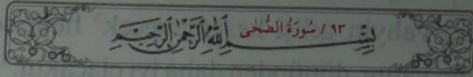 ٩٣ / سُورَةُ الضُّحٰى
بِسْمِ اللهِ الرَّحْمٰنِ الرَّحِيمِ